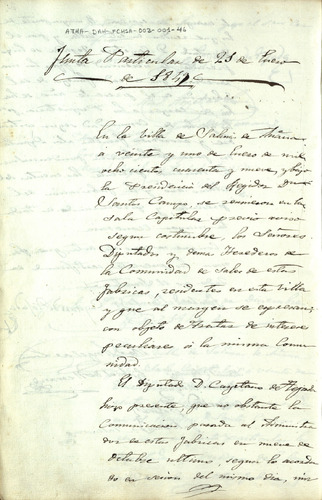 ATHA-DAH-FCHSA-002-001-46
Junta Particular de 21 de Enero
de 1849
En la Villa de Salinas de Añana
á veinte y uno de Enero de mil
ochocientos cuarenta y nueve, y bajo
la Presidencia del Regidor Dn
Santos Ocampo, se reunieron en la
Sala Capitular previo aviso
segun costumbre, los Señores
Diputados y demas Herederos de
la Comunidad de Sales de estas
Fabricas, residentes en esta Villa
y que al margen se expresan,
con objeto de tratar de intereses
peculiares á la misma Comu
nidad.
El Diputado D. Cayetano de
hizo presente, que no obstante la
Comunicacion pasada al Administra
dor de estas Fabricas en nueve de
Octubre ultimo, segun lo acorda
do en sesion del mismo dia,